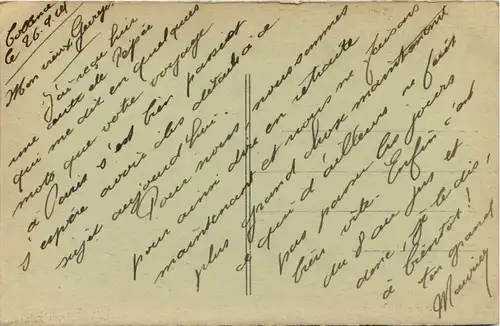 le 26.9.24
Mon vieux George
J'ai reçu hier
une carte de Pépée
qui me dit en quelques
mots que votre voyage
à Paris s'est bien passé et
j'espère avoir des détails à ce
sujet aujourd'hui.
Pour nous, nous sommes
pour ainsi dire en retraite
maintenant et nous ne faisons
plus grand chose maintenant
ce qui d'ailleurs ne fait
pas passer les jours
bien vite. Enfin c'est
du 8 au jus et
donc, je te dis,
à bientôt!
ton grand
Maurice